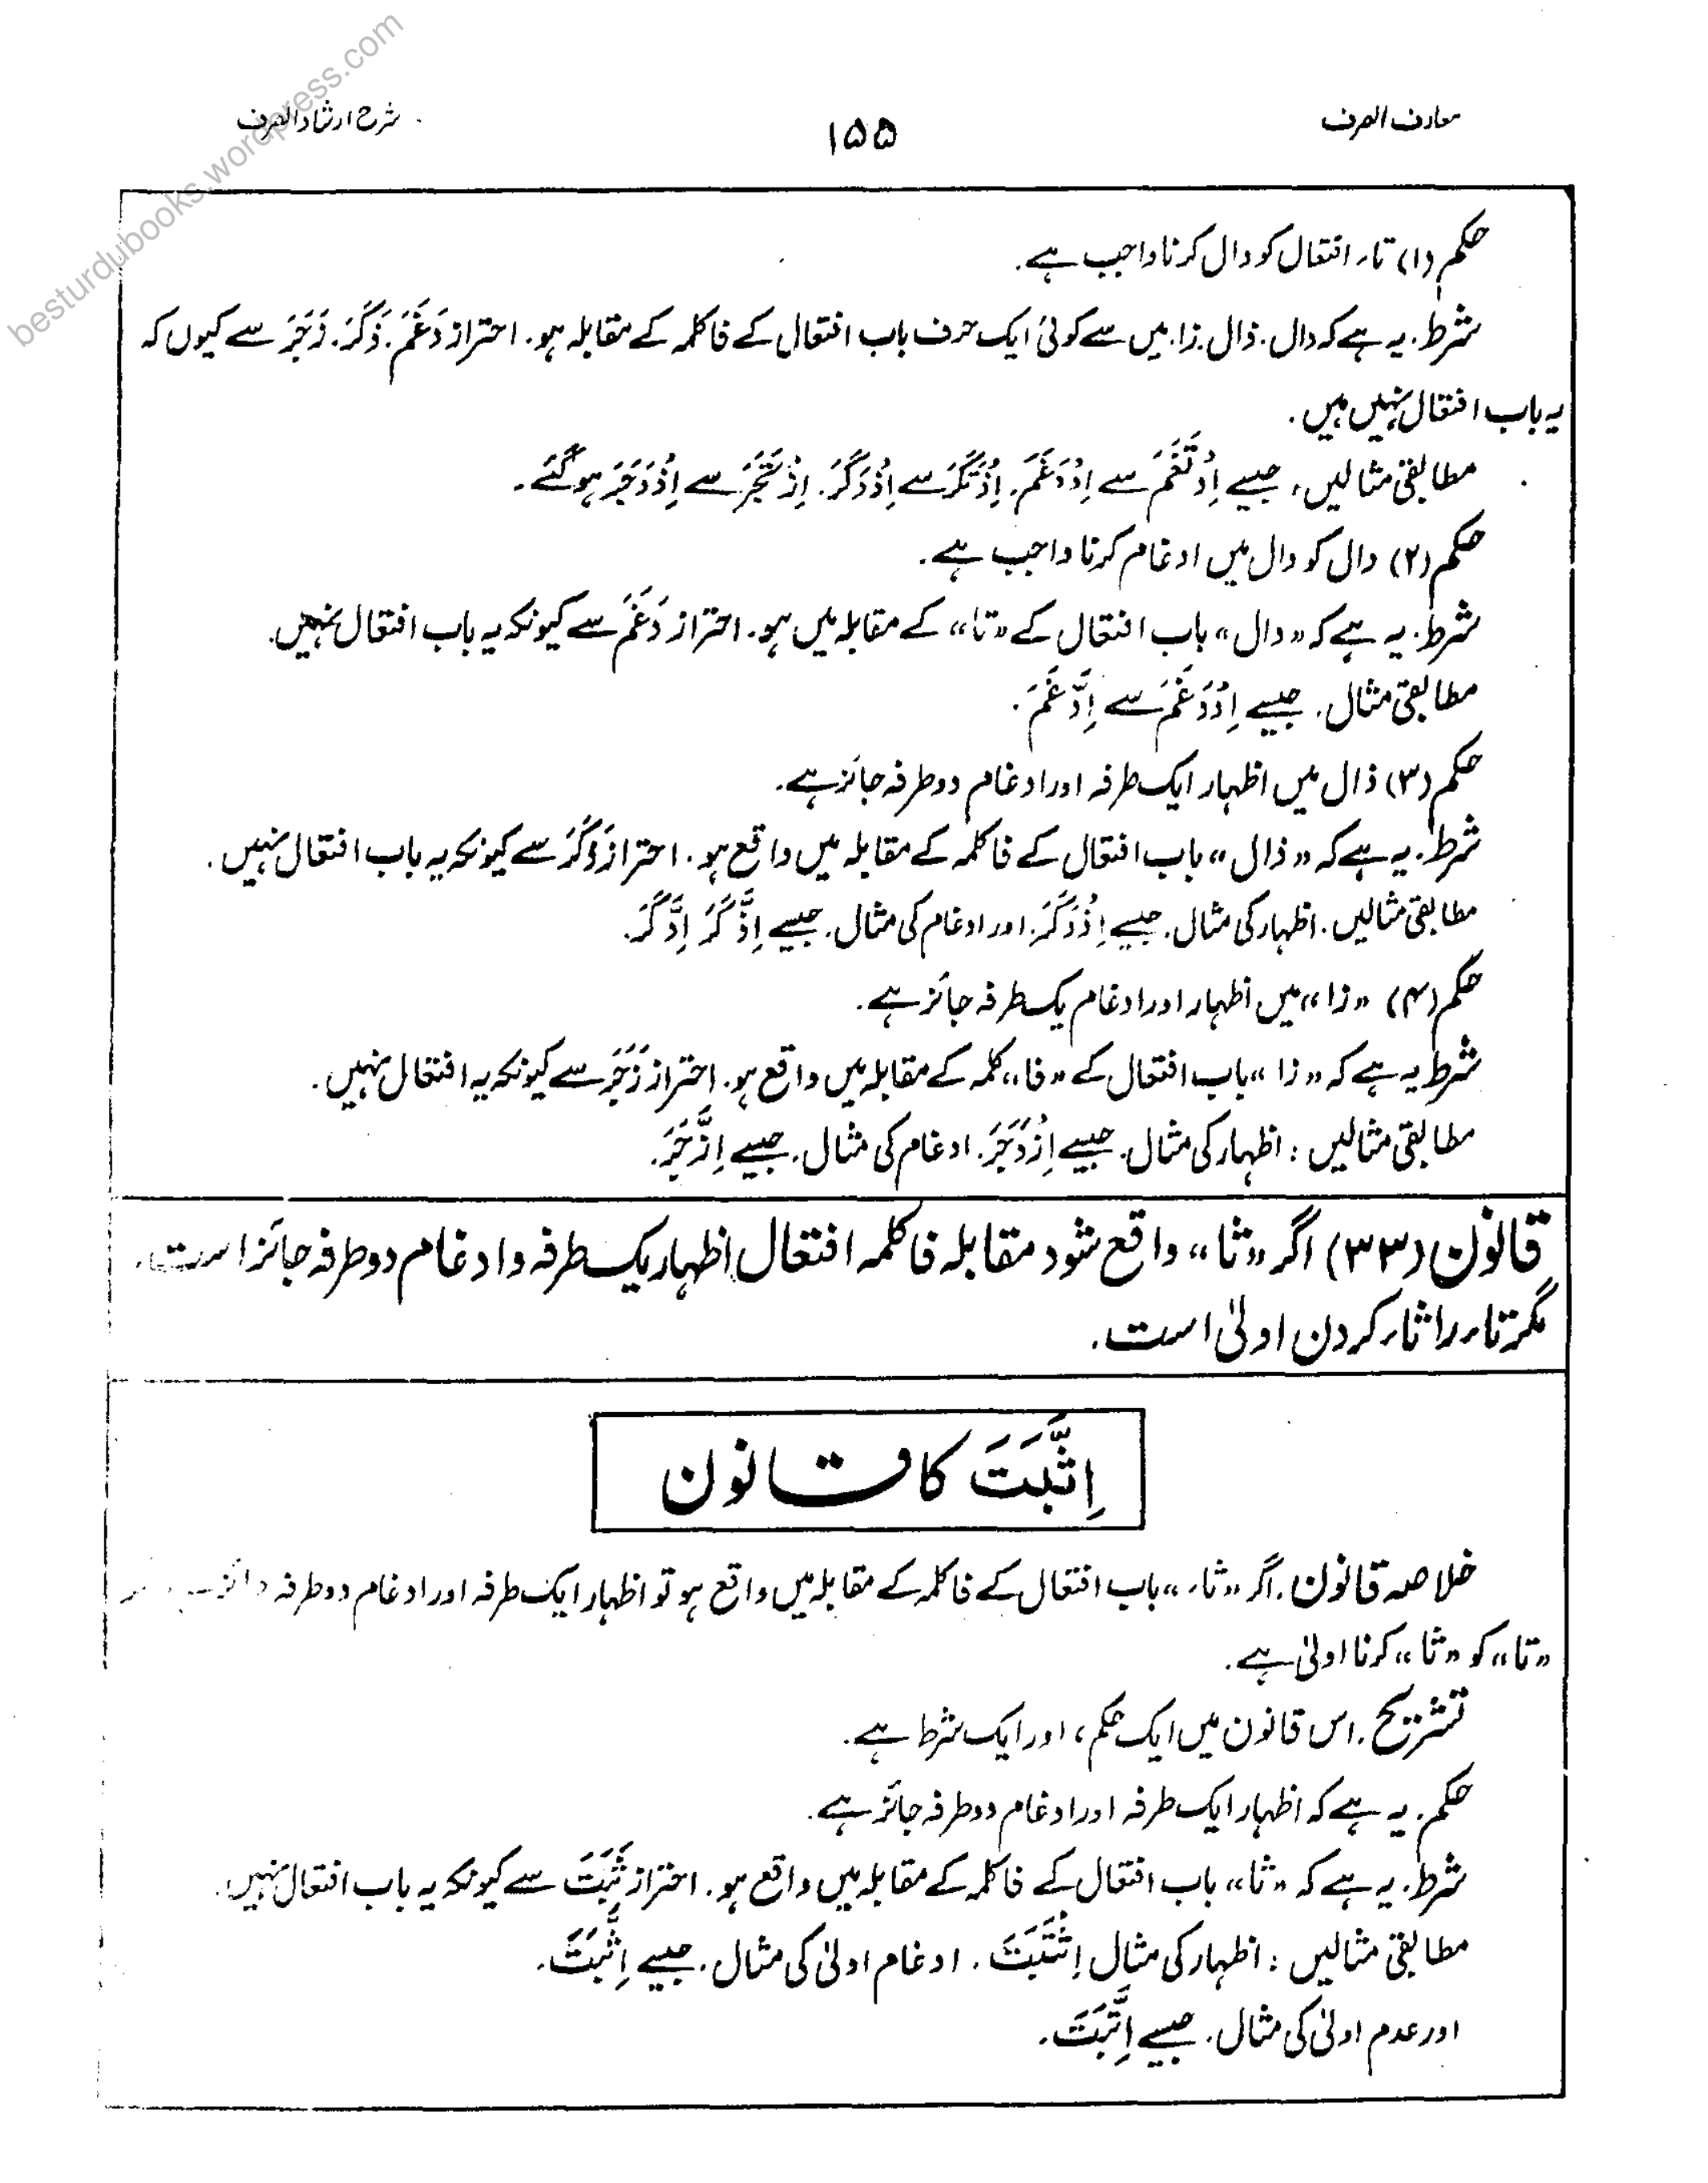 besturdubooks.wordpress.com
معارف الصرف
۱۵۵
شرح ارشاد الصرف
حکم (۱) تاء افتعال کو دال کرنا واجب ہے۔
شرط۔ یہ ہے کہ دال۔ ذال۔ زا۔ میں سے کوئی ایک حرف باب افتعال کے فا کلمہ کے مقابلہ ہو۔ احتراز دَغَمَ۔ ذَکَرَ۔ زَجَرَ سے کیوں کہ
یہ باب افتعال نہیں ہیں۔
مطابقی مثالیں، جیسے اِدْتَغَمَ سے اِدْدَغَمَ۔ اِذْتَکَرَ سے اِذْدَکَرَ۔ اِزْتَجَرَ سے اِزْدَجَرَ ہو گئے۔
حکم (۲) دال کو دال میں ادغام کرنا واجب ہے۔
شرط۔ یہ ہے کہ «دال» باب افتعال کے «تا» کے مقابلہ میں ہو۔ احتراز دَغَمَ سے کیونکہ یہ باب افتعال نہیں۔
مطابقی مثال۔ جیسے اِدْدَغَمَ سے اِدَّغَمَ۔
حکم (۳) ذال میں اظہار ایک طرفہ اور ادغام دو طرفہ جائز ہے۔
شرط۔ یہ ہے کہ «ذال» باب افتعال کے فا کلمہ کے مقابلہ میں واقع ہو۔ احتراز ذَکَرَ سے کیونکہ یہ باب افتعال نہیں۔
مطابقی مثالیں۔ اظہار کی مثال۔ جیسے اِذْدَکَرَ۔ اور ادغام کی مثال۔ جیسے اِذَّکَرَ اِدَّکَرَ۔
حکم (۴) «زا» میں اظہار اور ادغام یک طرفہ جائز ہے۔
شرط یہ ہے کہ «زا» باب افتعال کے «فا» کلمہ کے مقابلہ میں واقع ہو۔ احتراز زَجَرَ سے کیونکہ یہ افتعال نہیں۔
مطابقی مثالیں: اظہار کی مثال۔ جیسے اِزْدَجَرَ۔ ادغام کی مثال۔ جیسے اِزَّجَرَ۔
قانون (۳۳) اگر «ثا» واقع شود مقابلہ فا کلمہ افتعال اظہار یک طرفہ و ادغام دو طرفہ جائز است۔
مگر تاء را ثاء کردن اولیٰ است۔
اِثَّبَتَ کا قانون
خلاصہ قانون۔ اگر «ثاء» باب افتعال کے فا کلمہ کے مقابلہ میں واقع ہو تو اظہار ایک طرفہ اور ادغام دو طرفہ
«تا» کو «ثا» کرنا اولیٰ ہے۔
تشریح۔ اس قانون میں ایک حکم، اور ایک شرط ہے۔
حکم۔ یہ ہے کہ اظہار ایک طرفہ اور ادغام دو طرفہ جائز ہے۔
شرط۔ یہ ہے کہ «ثا» باب افتعال کے فا کلمہ کے مقابلہ میں واقع ہو۔ احتراز ثَبَتَ سے کیونکہ یہ باب افتعال نہیں۔
مطابقی مثالیں: اظہار کی مثال اِثْتَبَتَ۔ ادغام اولیٰ کی مثال۔ جیسے اِثَّبَتَ۔
اور عدم اولیٰ کی مثال۔ جیسے اِتَّبَتَ۔